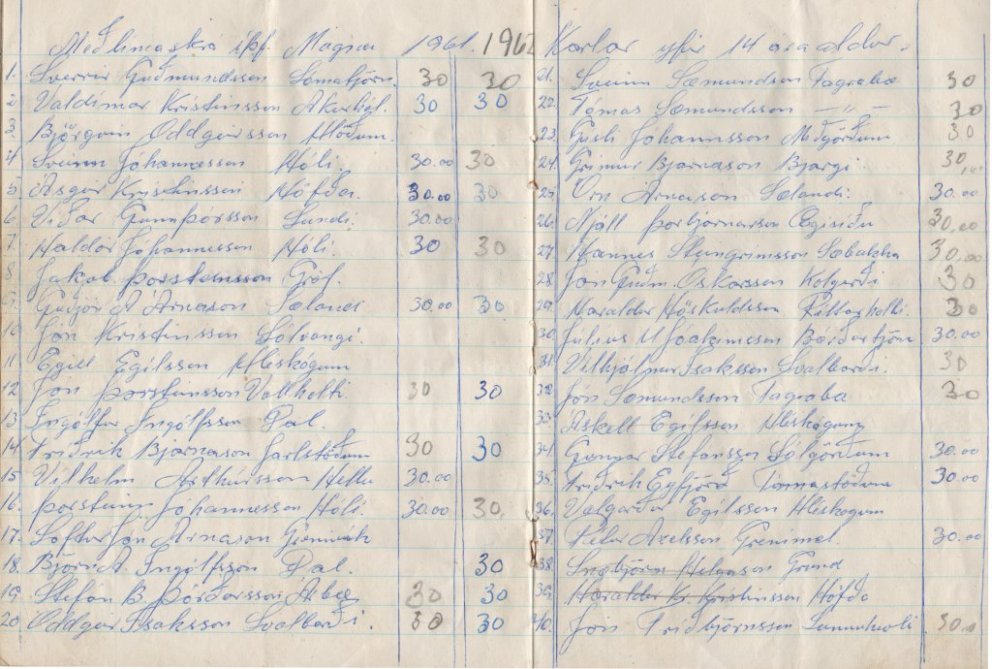 Meðlimaskrá íþf. Magna 1961. 1962
1. Sverrir Guðmundsson Lómatjörn. 30 30
2. Valdimar Kristinsson Akurbýl. 30 30
3. Björgvin Oddgeirsson Hlöðum.
4. Sveinn Jóhannesson Hóli. 30.00 30
5. Ásgeir Kristinsson Höfða. 30.00 30
6. Viðar Gunnþórsson Lundi. 30.00
7. Haldór Jóhannesson Hóli 30 30
8. Jakob Þorsteinsson Gróf.
9. Guðjón Á Árnason Sælandi 30.00 30
10. Jón Kristinsson Sólvangi.
11 Egill Egilsson Hléskógum
12 Jón Þorsteinsson Vallholti. 30 30
13 Ingólfur Ingólfsson Dal.
14. Friðrik Bjarnason Jarlstöðum 30 30
15 Vilhelm Arthúrsson Hellu 30.00
16. Þorsteinn Jóhannesson Hóli. 30.00 30.
17. Loftur Jón Árnason Grenivík
18. Björn A. Ingólfsson Dal. 30
19. Stefán B Þórðarsson Árbæ 30 30
20 Oddgeir Ísaksson Svalbarði. 30 30
Karlar yfir 14 ára aldur.
21. Sveinn Sæmundsson Fagrabæ 30
22. Tómas Sæmundsson — " — 30
23. Gísli Jóhannsson Miðgörðum 30
24. Grímur Bjarnason Bjargi. 30,00
25. Örn Árnason Sælandi. 30.00
26. Njáll Þorbjörnarson Ægisíðu 30,00
27. Hannes Steingrímsson Sæbakka 30.00
28. Jón Guðm. Óskarsson Kolgerði 30
29. Haraldur Höskuldsson Réttarholti. 30
30. Júlíus M Jóhannsson Bárðartjörn 30.00
31. Vilhjálmur Ísaksson Svalbarði. 30
32. Jón Sæmundsson Fagrabæ 30
33. Áskell Egilsson Hléskógum
34. Gunnar Stefánsson Sólgörðum 30.00
35. Friðrik Eyfjörð 30.00
36. Valgarður Egilsson Hléskógum
37. Pétur Axelsson Grenimel. 30.00
38. Snæbjörn Helgason Grund
39. Haraldur Kr. Kristinsson Höfða
40. Jón Friðbjörnsson 30.00